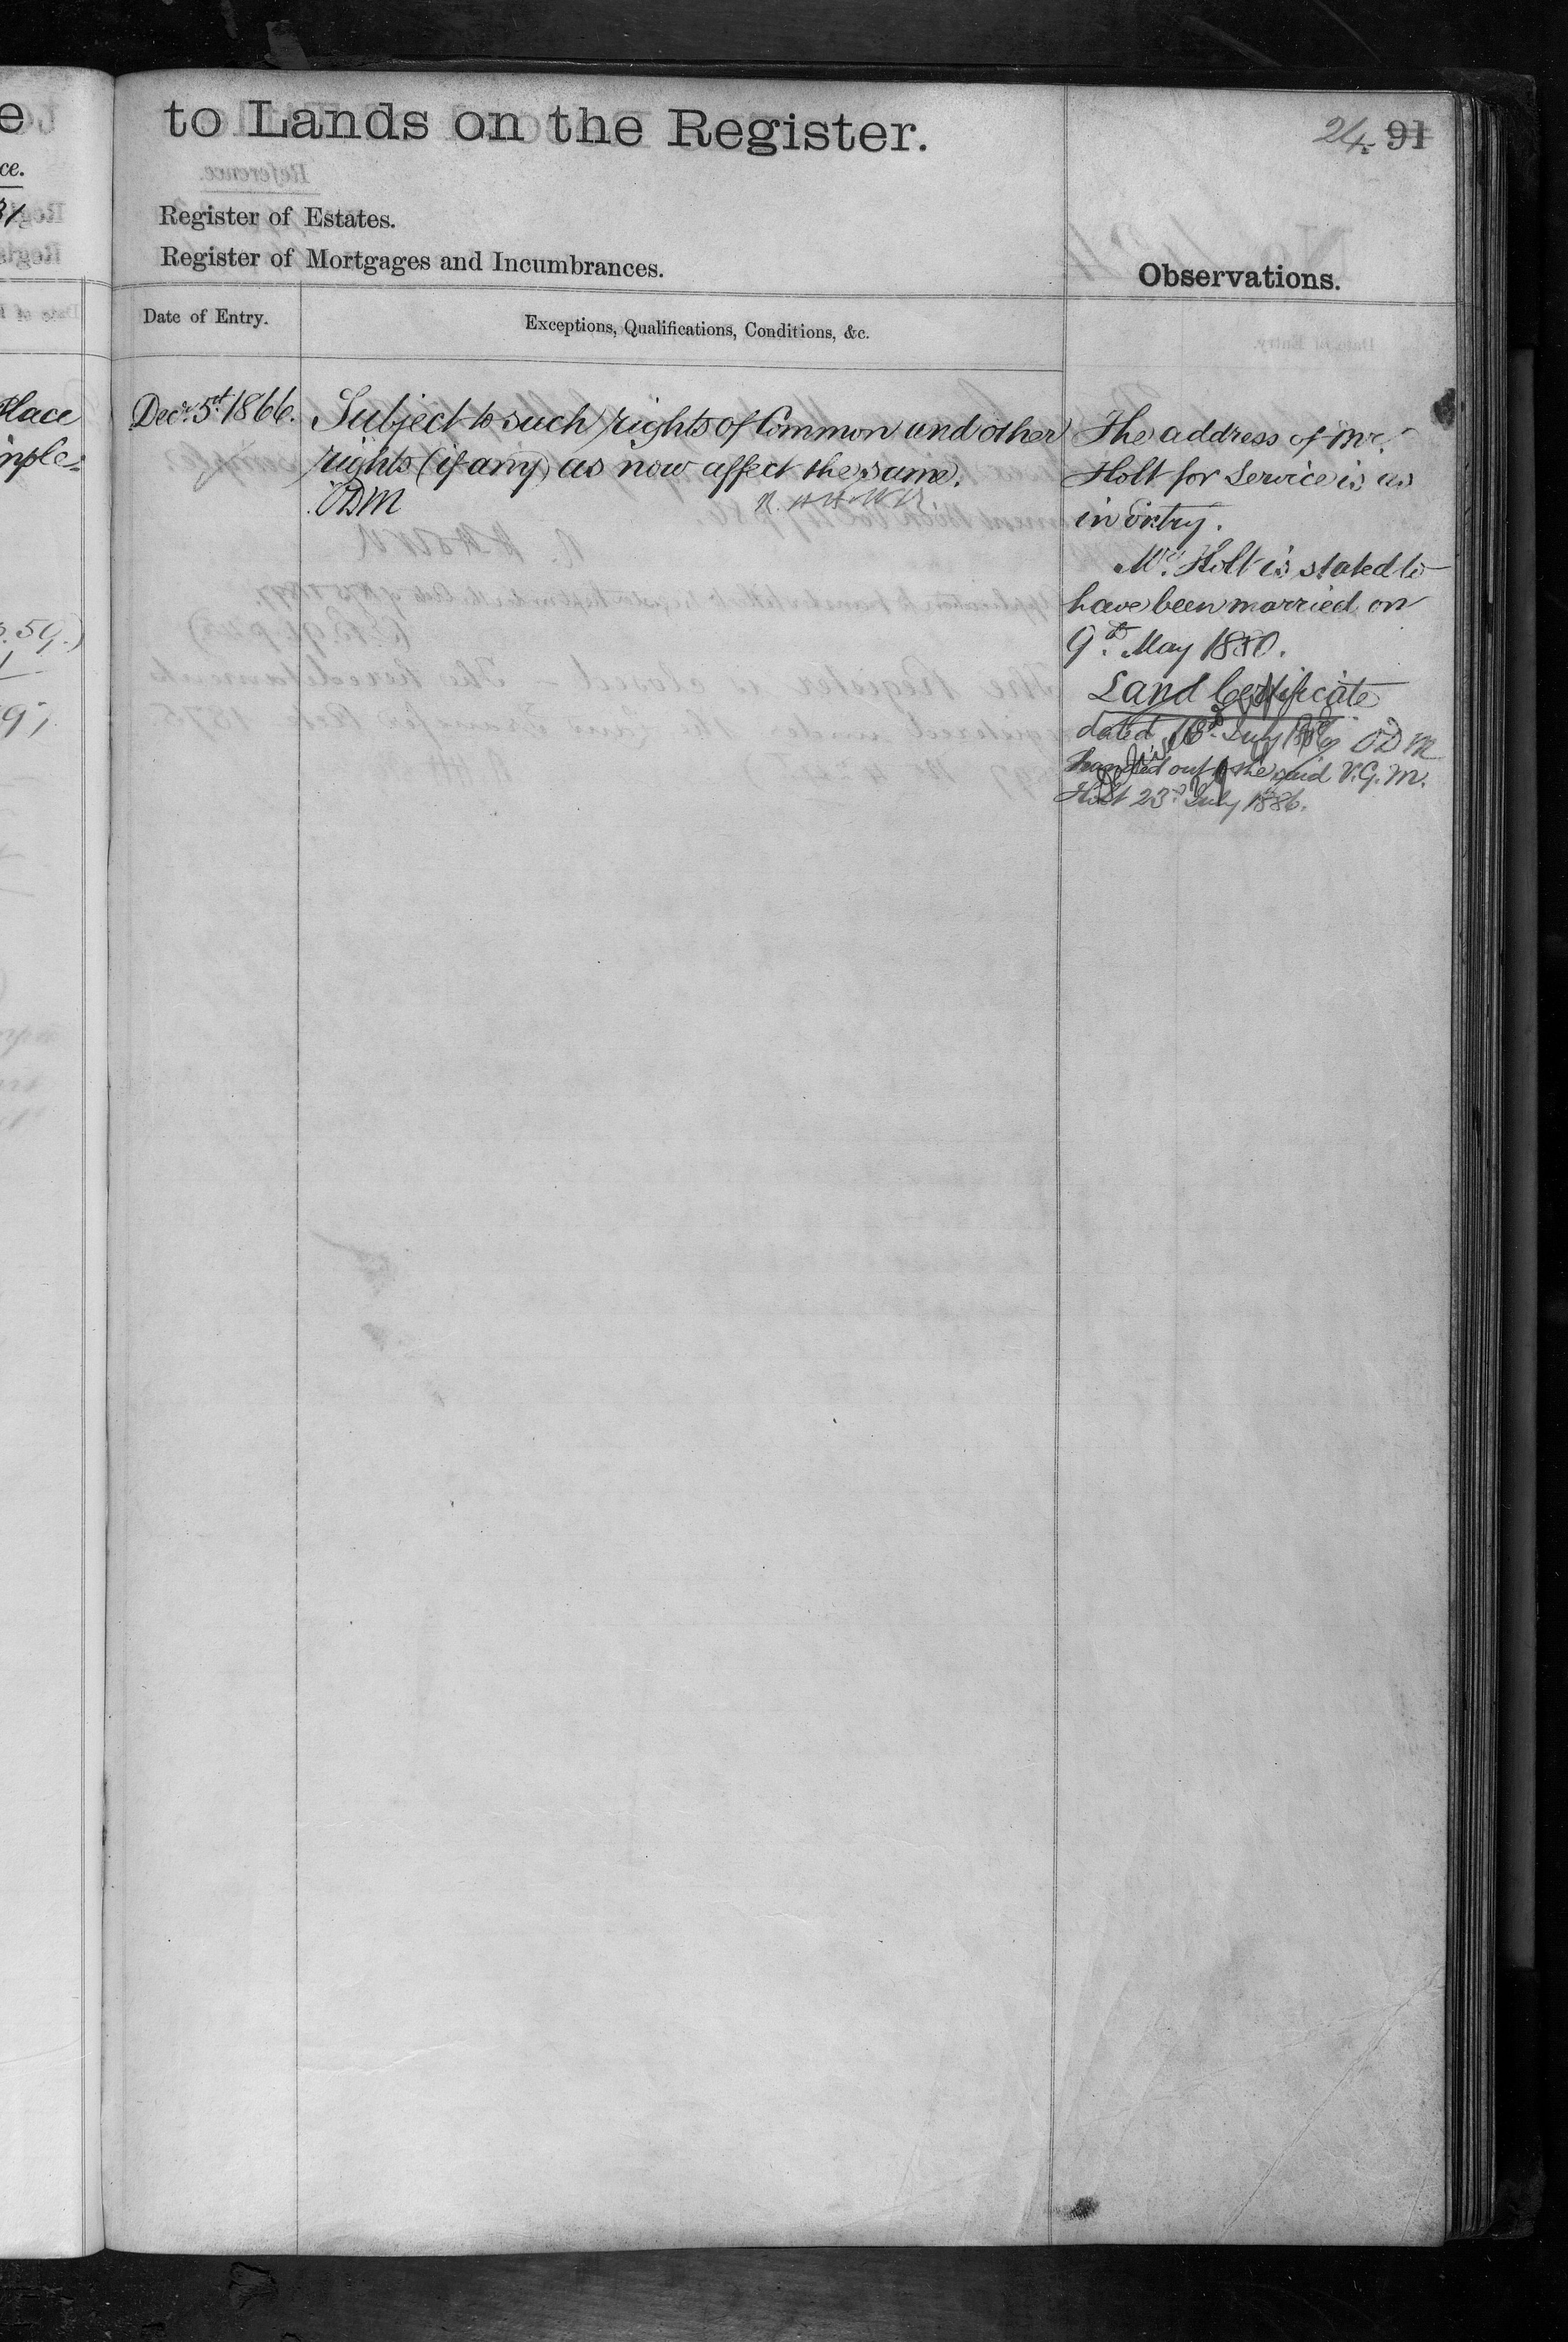 e
ce.
31
Place
imple=
p. 59.)
to Lands on the Register.
24. 91
Register of Estates.
Register of Mortgages and Incumbrances.
Observations.
Date of Entry.
Exceptions, Qualifications, Conditions, &c.
Decr. 5th. 1866.
Subject to such rights of Common and other
rights (if any) as now affect the same.
ODM
The address of Mr.
Holt for Service is as
in Entry.
Mr. Holt is stated to
have been married on
9th. May 1880.
Land Certificate
dated 16th. July ODM
handed out to the said V.G.M.
Holt 23rd July 1886.